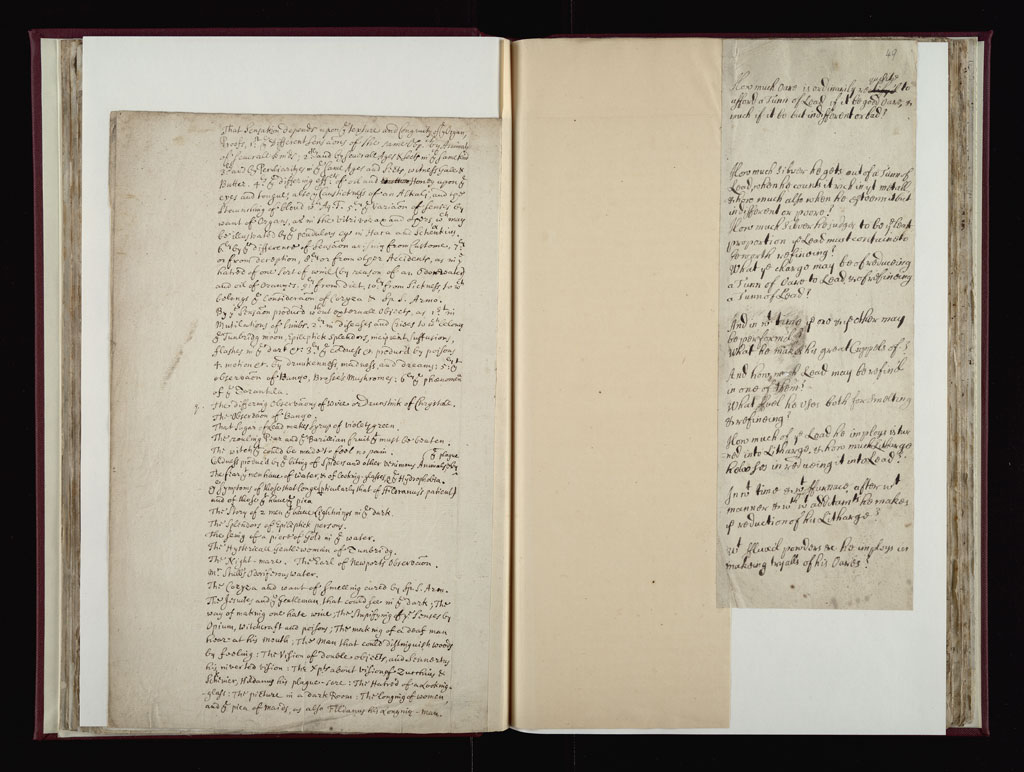 That sensation depends upon ye texture and Congruity of ye Organ,
Proofs, 1st ye different sensaions of the same Obj. by Animals
of severall kinds; 2. and by severall Ages & Sects in ye same kind
3. and by Peculiarities in ye same Ages and Sects, witness
Butter. 4. ye differing effects of oil and Honey upon ye
eyes and tongue; also ye Causticknes of an Alkaly, and ye
of blood to . 5. ye variaõn of senses by
want of Organs, as in the
be illustrated by ye pendulous eye in Hara and Schenkius,
6. by ye difference of sensaõn arising from Custome, 7.
or from deception, 8. or from other Accidents, as in ye
hatred of one sort of wine by reason of an
and oil of Oranges. 9. from diet, 10. from Sicknes, to wch
belongs ye Consideraõn of Coryza & Sp. S. Armo.
By ye Sensaõn produced wthout externall Objects, as 1st in
Mutilations of Limbs. 2. in diseases and Crises to wch belong
ye Tunbridg moon, Epileptick Splendors, incipient Suffusions,
flashes in ye dark &c: 3. ye produced by poisons
4. motion &c. by drunkenness, madness, and dreams; 5.
observaõn of Bango, Mushromes; 6. ye phænomena
of ye Tarantula.
The differing Observaõns of
The Observaõn of Bango.
That Sugar of Lead makes syrup of violets green.
The rouling Pear and ye Barsilian fruit yt must be beaten.
The witch yt could be made to feel no pain.
Madness produced by ye biting of Spiders and other Venimous Animals &
ye plague
The fear yt men have of water, & of Looking-glasses, ye Hydrophobia.
ye Symptoms of those that Long (particularly that of Hildanus's patient)
and of those yt have ye pica
The Story of 2 men yt have Lightnings in ye dark.
The Splendors of Epileptick persons.
The seeing of a piece of gold in ye water.
The Hystericall Gentlewoman of Tunbridg.
The Night-mare. The Earl of Newports Observaõn.
Mr. Odoriferous water.
The Coryza and want of Smelling cured by Sp. S. Arm.
The Jesuite and ye Gentleman that could see in ye dark; The
way of making one hate wine; The Stupifying of ye Senses by
Opium, Witchcraft and poisons; The making of a deaf man
hear at his mouth; The Man that could distinguish woods
by feeling: The Vision of double objects, and Sennertus
his inverted vision: The Xpts about vision of Zucchius &
Scheiner, Hildanus his plague-sore: The Hatred of a Looking-
glass: The picture in a dark Room: The longing of women,
and ye pica of Maids, as also Hildanus his Longing-man.
49
How much Oare is ordinarily to
afford a Tunn of Lead if it be good Oare, &
much if it be but indifferent or bad?
How much Silver he gets out of a Tunn of
Lead, when he counts it rich in yt metall
& how much also when he esteems it but
indifferent or poore?
How much Silver he judges to be ye least
proportion ye Lead must containe to
be worth refineing?
What ye charge may be of reduceing
a Tunn of Oare to Lead & of refineing
a Tunn of Lead?
And in wt time ye one & ye other may
be performed?
What he makes his great Cuppels of?
And how much Lead may be refin'd
in one of them?
What fuel he uses both for smelting
& refineing?
How much of ye Lead he imploys is tur
ned into Litharge, & how much Litharge
he loses in reduceing it into Lead?
In wt time & wt Furnace, after wt
manner & wth wt additamts he makes
ye reduction of his Litharge?
wt Fluxil powders &c he imploys in
makeing tryalls of his Oares?